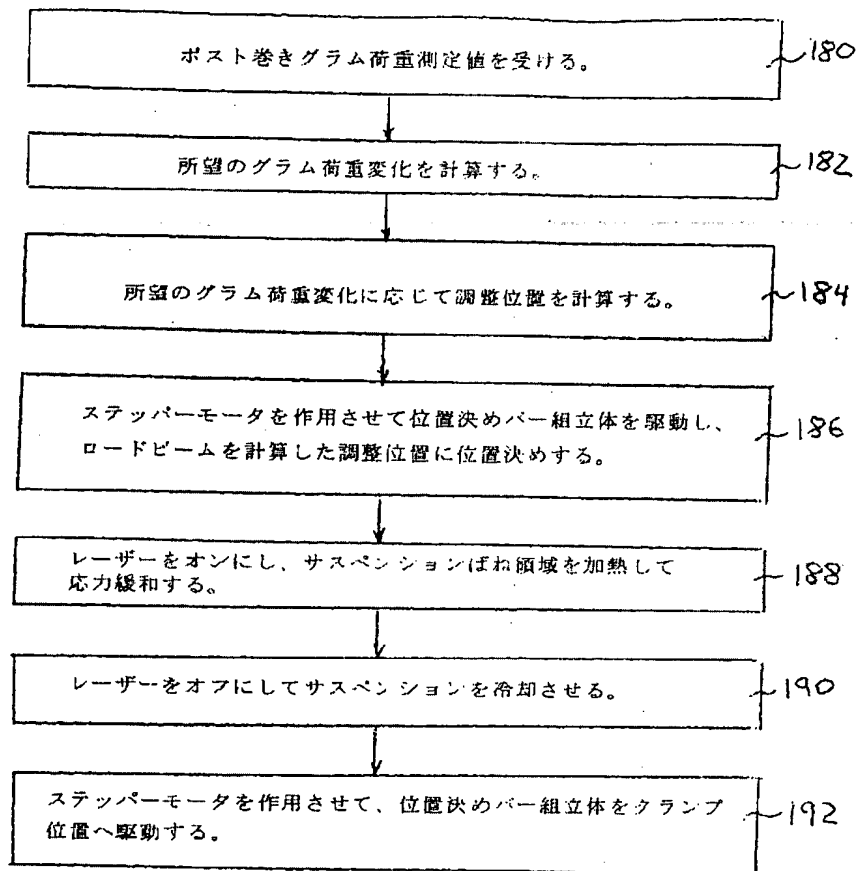 ポスト巻きグラム荷重測定値を受ける。 180
所望のグラム荷重変化を計算する。 182
所望のグラム荷重変化に応じて調整位置を計算する。 184
ステッパーモータを作用させて位置決めバー組立体を駆動し、
ロードビームを計算した調整位置に位置決めする。 186
レーザーをオンにし、サスペンションばね領域を加熱して
応力緩和する。 188
レーザーをオフにしてサスペンションを冷却させる。 190
ステッパーモータを作用させて、位置決めバー組立体をクランプ
位置へ駆動する。 192